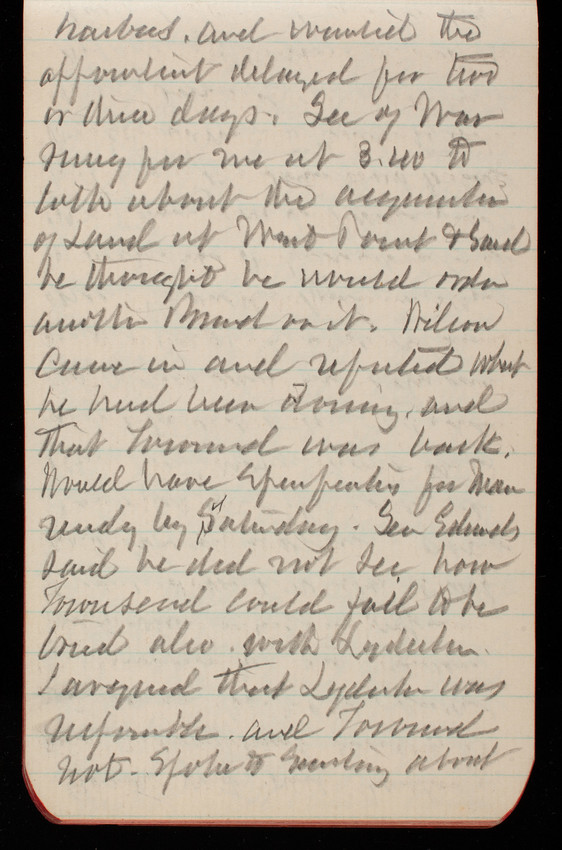 harbors. and wanted the
appointment delayed for two
or three days. Sec of War
rung for me at 3.40 to
talk about the acquisition
of Land at West Point & said
he thought he would order
another Board on it. Wilson
came in and reported what
he had been doing. and
that Townsend was back.
Would have specification for Mar
ready by Saturday. Gen Edwards
said he did not see how
Townsend could fail to be
tried also with Lydecker.
I argued that Lydecker was
responsible. and Townsend
not. Spoke to about